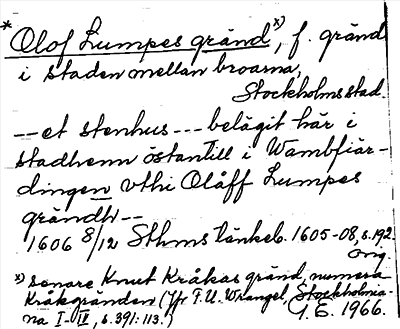 * Olof Lumpes gränd x), f. gränd
i staden mellan broarna,
Stockholms stad.
-- et stenhus --- belägit här i
stadhenn östantill i Wambfiär-
dingen vthi Olåff Lumpes
grändh --
1606 8/12 Sthms tänkeb. 1605-08, s. 192
orig.
x) senare Knut Kråkas gränd, numera
Kråkgränden (Jfr F.U. Wrangel, Stockholmia-
na I-IV, s. 391: 113.) G.E. 1966.